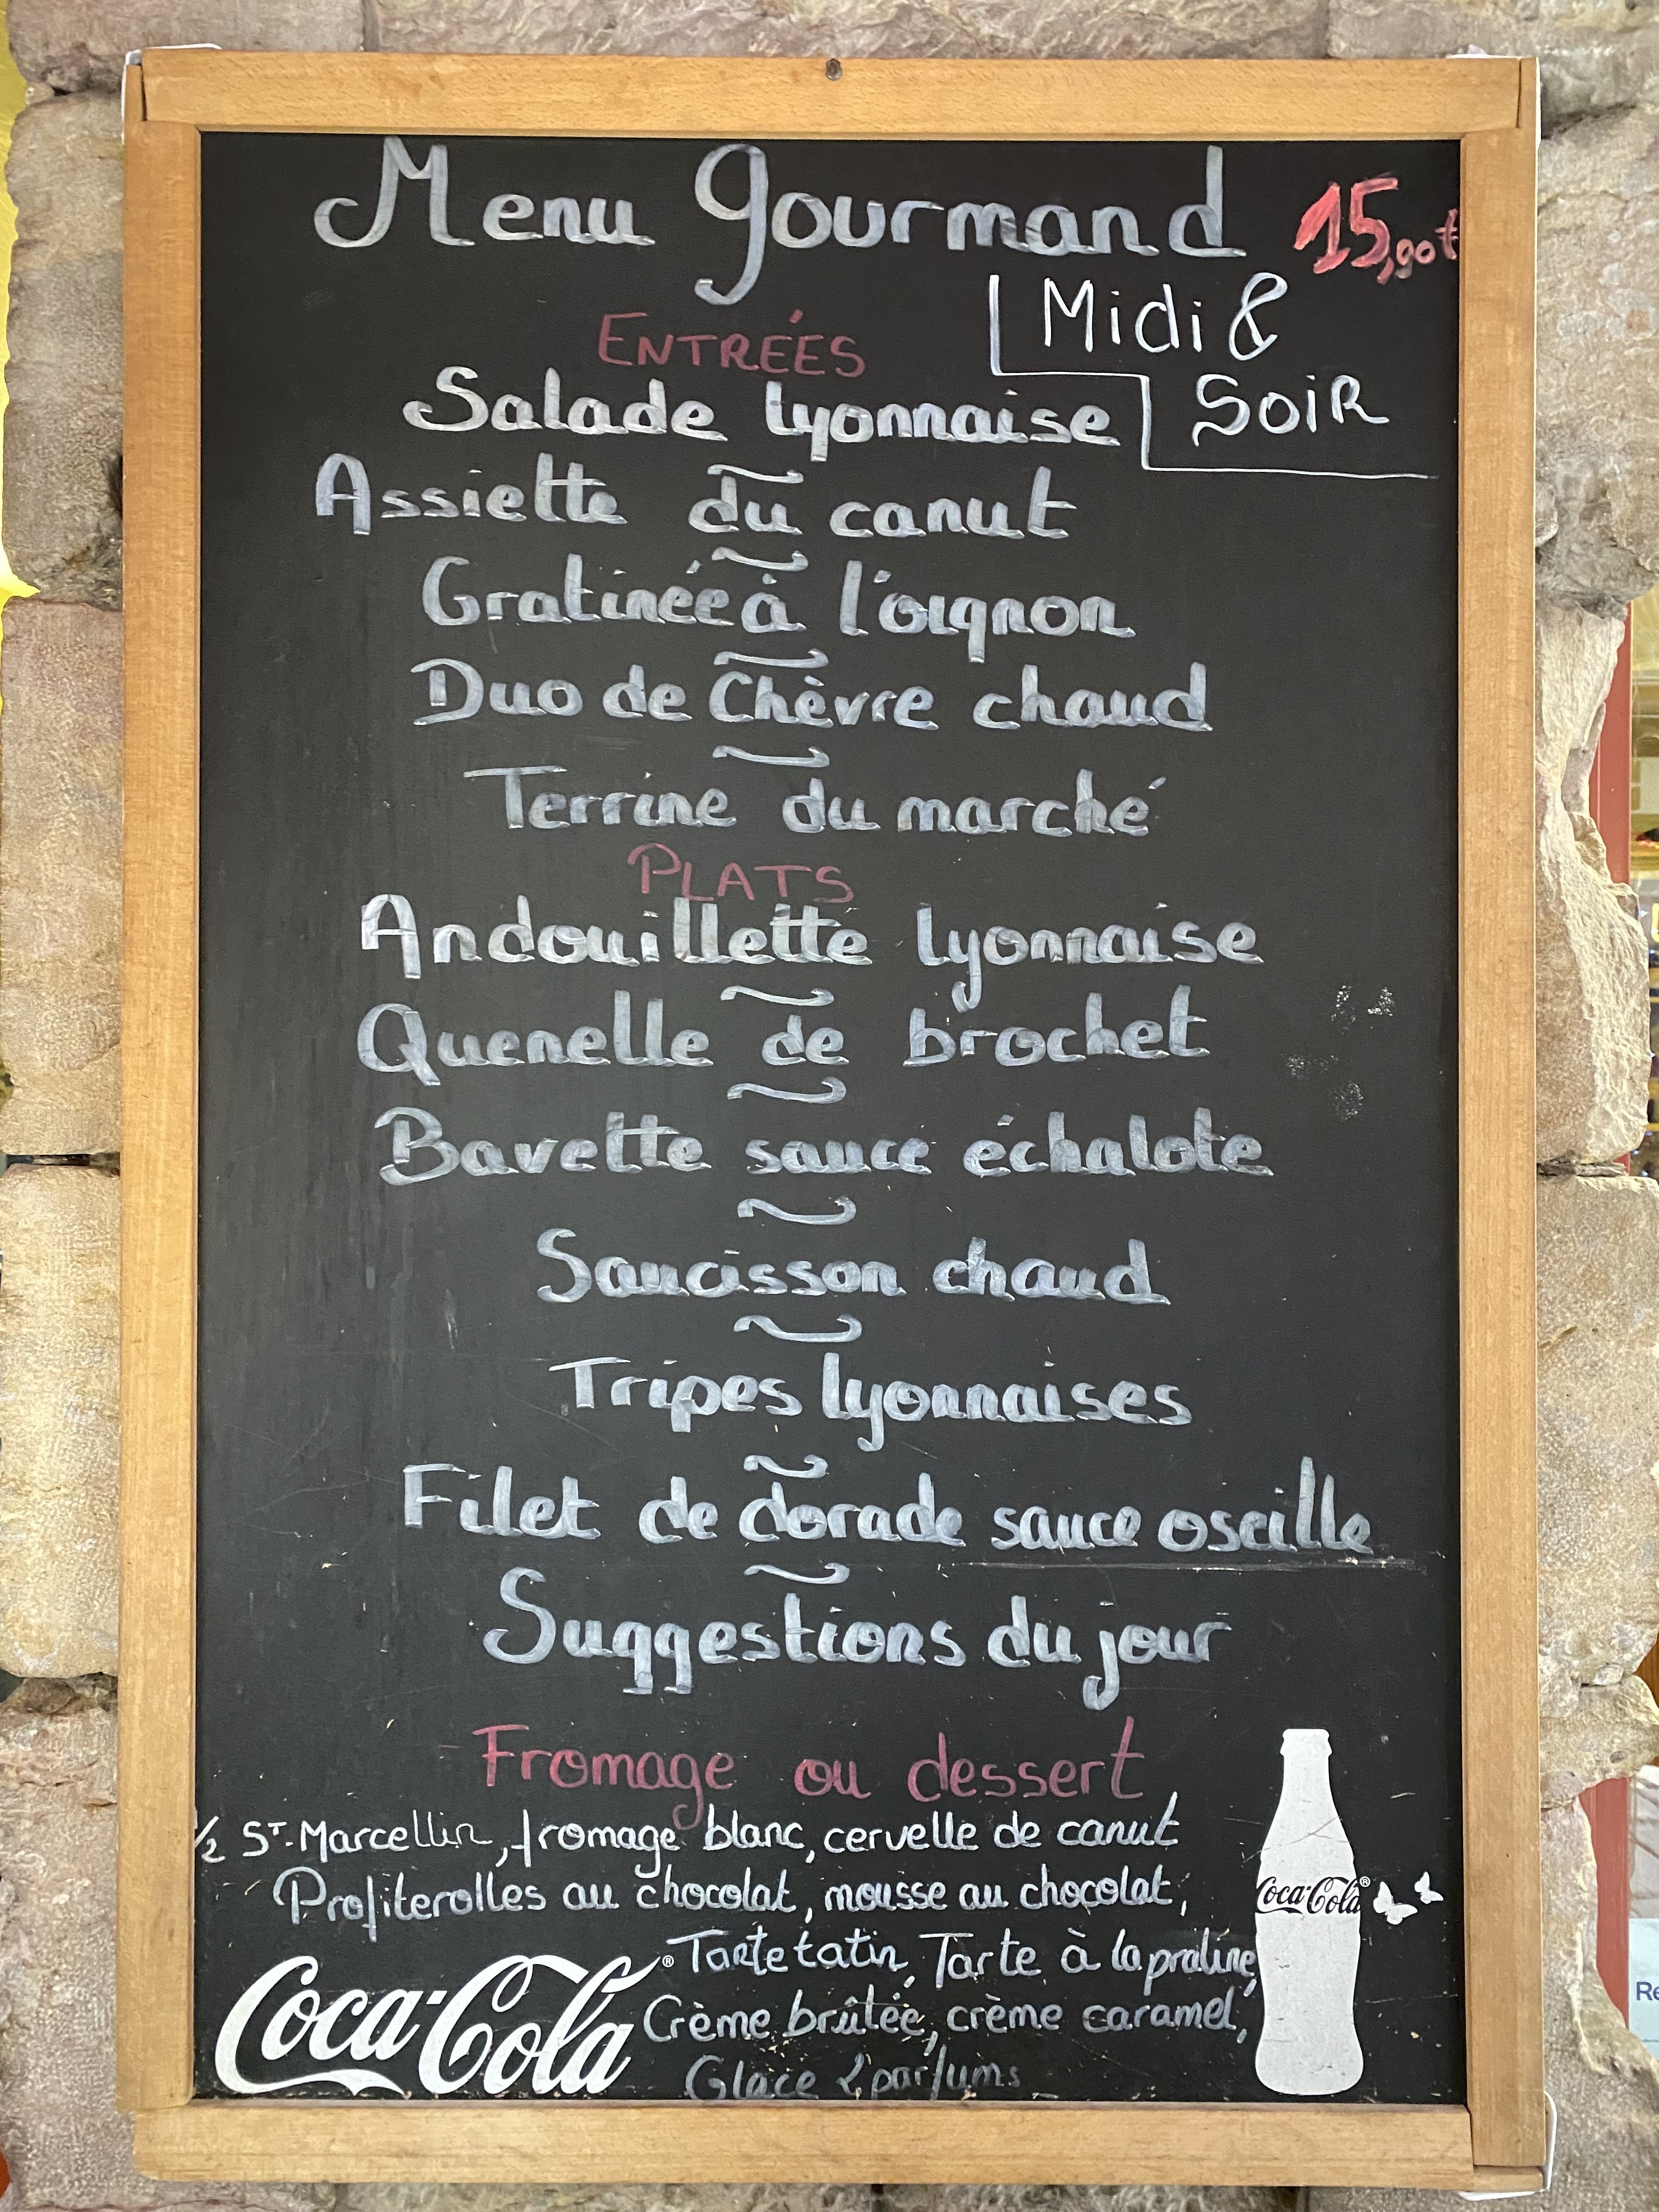 Menu Gourmand 15,90€
Midi &
ENTRÉES
Soir
Salade lyonnaise
Assiette du canut
Gratinée à l'oignon
Duo de Chèvre chaud
Terrine du marché
PLATS
Andouillette lyonnaise
Quenelle de brochet
Bavette sauce échalote
Saucisson chaud
Tripes lyonnaises
Filet de dorade sauce oseille
Suggestions du jour
Fromage ou dessert
1/2 ST-Marcellin, fromage blanc, cervelle de canut
Profiterolles au chocolat, mousse au chocolat,
Coca-Cola®
Tarte tatin, Tarte à la praline,
Coca-Cola®
Crème brûlée, crème caramel,
Glace 2 parfums